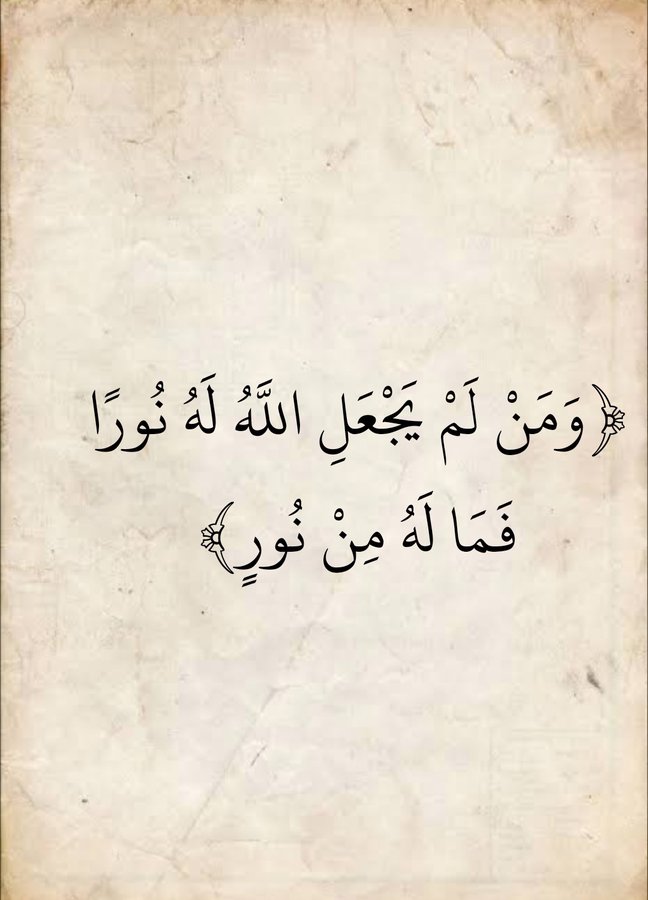 ﴿وَمَنْ لَمْ يَجْعَلِ اللَّهُ لَهُ نُورًا
فَمَا لَهُ مِنْ نُورٍ﴾